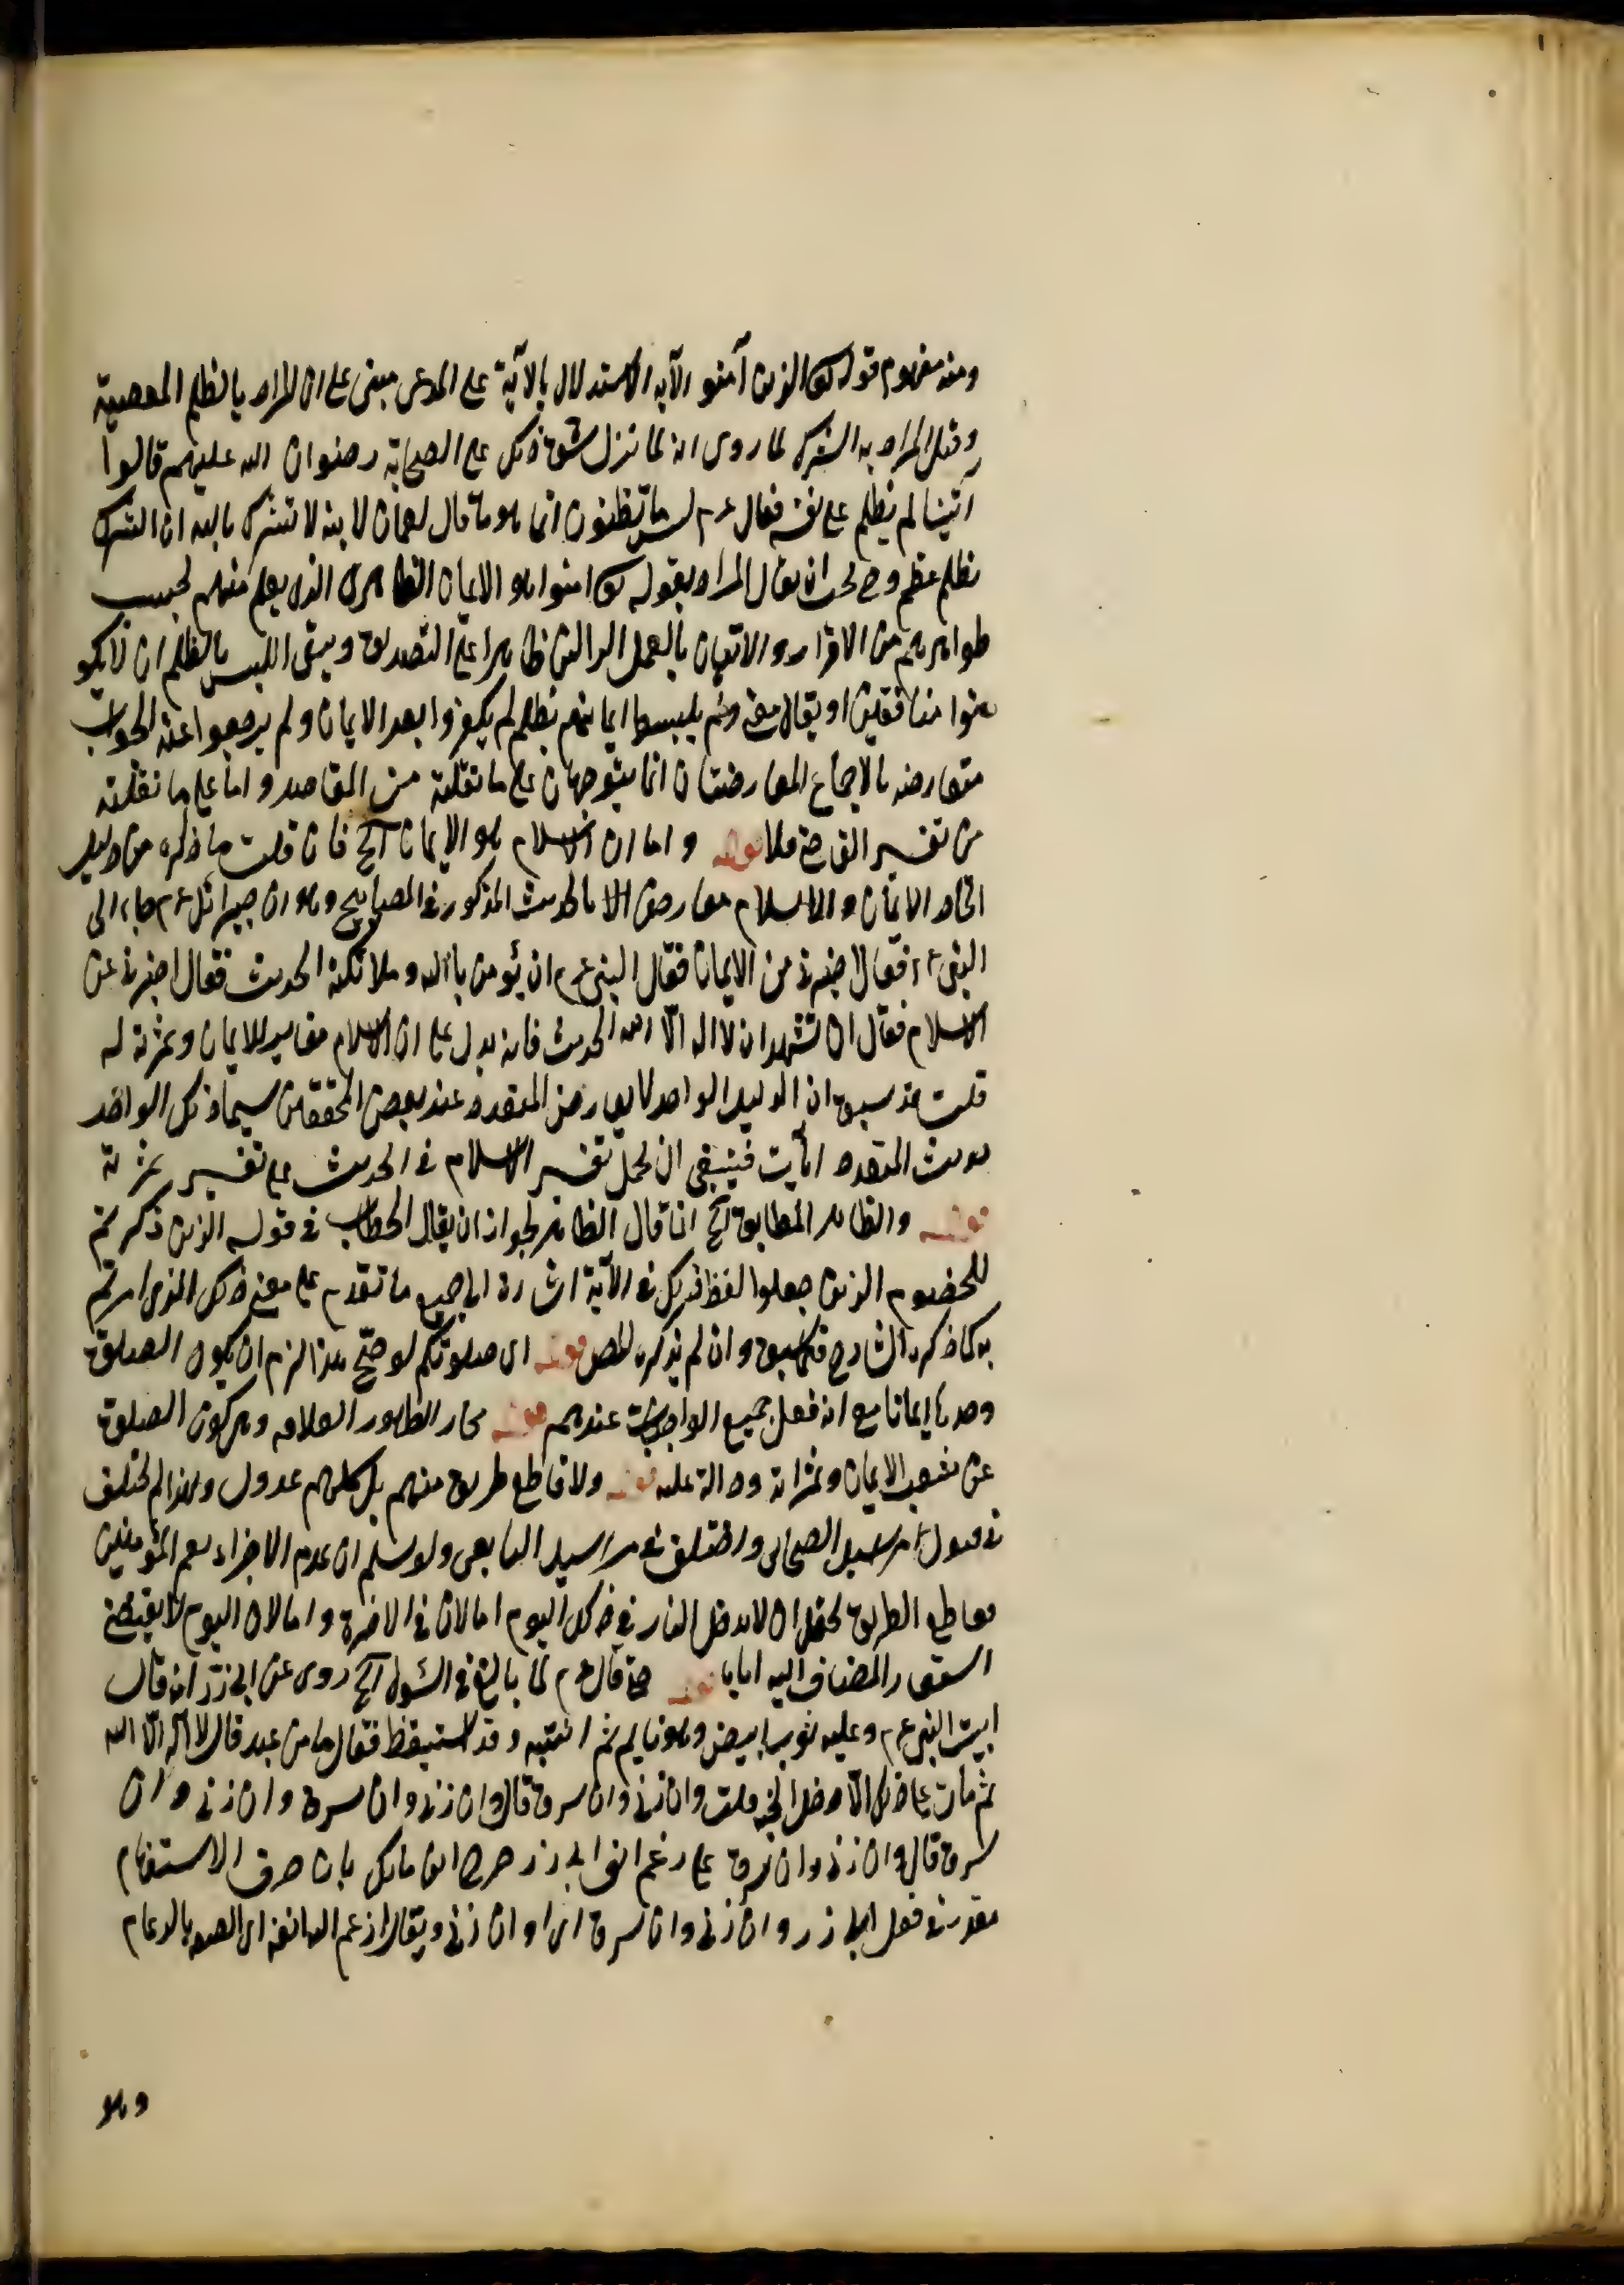 ومنه مفهوم قوله تع الذين آمنو الآية الاستدلال بالآية على المدعى مبنى على ان المراد بالظلم المعصية
وقيل المراد به الشرك لما روى انه لما نزل شق ذلك على الصحابة رضوان الله عليهم قالوا
أينا لم يظلم على نفسه فقال عم ليس ما تظنون انما هو ما قال لقمان لابنه لا تشرك بالله ان الشرك
لظلم عظيم وح يجب ان يقال المراد بقوله تع امنوا هو الايمان الظاهرى الذى يعلم منهم بحسب
ظواهرهم من الاقرار والاتيان بالعمل الدالين ظاهرا على التصديق ويبقى اللبس بالظلم ان لا يكو
نوا منافقين او يقال معنى ولم يلبسوا ايمانهم بظلم لم يكفروا بعد الايمان ولم يرجعوا عنه الجواب
متعارضه بالاجماع المعارضتان انما يتوجهان على ما نقلته من المقاصد واما على ما نقلته
من تفسير القاضى فلا قوله واما ان الاسلام هو الايمان آلخ فان قلت ما ذكره من دليل
اتحاد الايمان والاسلام معارض الا بالحديث المذكور فى المصابيح وهو ان جبرائل عم جاء الى
النبى عم فقال اخبرنى من الايمان فقال النبى عم ان يؤمن بالله وملائكته الحديث فقال اخبرنى عن
الاسلام فقال ان تشهد ان لا اله الا الله الحديث فانه يدل على ان الاسلام مغاير للايمان وثمرته له
قلت قد سبق ان الدليل الواحد لا يعارض المتعدد عند بعض المحققين سيما ذلك الواحد
حديث المتعدد آيات فينبغى ان يحمل تفسير الاسلام فى الحديث على تفسير ثمرته
قوله والظاهر المطابق آلخ انما قال الظاهر لجواز ان يقال الخطاب فى قوله الذين ذكرتم
للخصوم الذين جعلوا لفظ ذلك فى الآية اشارة الى جميع ما تقدم على معنى ذلك الذى امرتم
به كما ذكره الشارح فيما سبق وان لم يذكره المص قوله اى صلوتكم لو صح هذا لزم ان يكون الصلوة
وحدها ايمانا مع انه فعل جميع الواجبات عندهم قوله مجاز لظهور العلاقة وهى كون الصلوة
من شعب الايمان وثمراته ودالة عليه قوله ولا قاطع طريق منهم بل كلهم عدول ولهذا لم يختلف
فى قبول مراسيل الصحابى واختلف فى مراسيل التابعى ولو سلم ان عدم الاخزاء يعم المؤمنين
فقاطع الطريق يحتمل ان لا يدخل النار فى ذلك اليوم اما لان فى الاخرة واما لان اليوم لا يقتضى
المضاف اليه اياها قوله حتى قال عم لما بالغ فى السؤل آلخ روى عن ابى ذر انه قال
اتيت النبى عم وعليه ثوب ابيض وهو نايم ثم اتيته وقد استيقظ فقال ما من عبد قال لا اله الا الله
ثم مات على ذلك الا دخل الجنة قلت وان زنى وان سرق قال وان زنى وان سرق قلت وان زنى وان
سرق قال وان زنى وان سرق على رغم انف ابى ذر صرح ابن مالك بان حرف الاستفهام
مقدر فى فعل ابى ذر وان زنى وان سرق اى او ان زنى ويقال ارغم الله انفه اى الصقه بالرغام
وهو